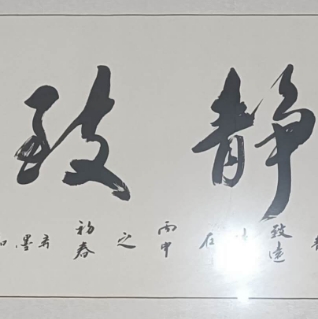 静致
致遠 丙申之初春 墨